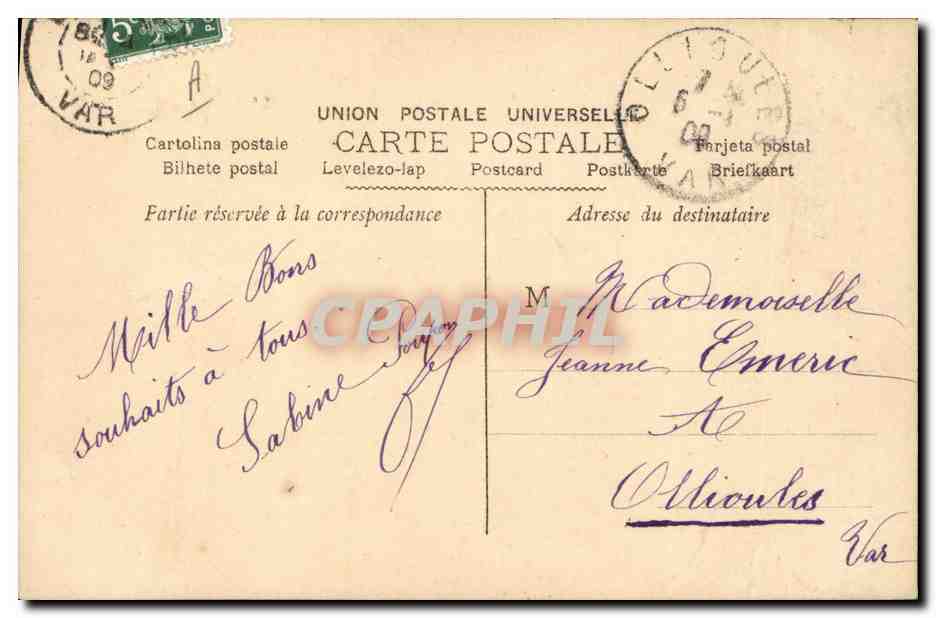 5c
09
VAR
A
OLLIOULES
09
VAR
UNION POSTALE UNIVERSELLE
CARTE POSTALE
Cartolina postale
Tarjeta postal
Bilhete postal Levelezo-lap Postcard Postkarte Briefkaart
Partie réservée à la correspondance
Adresse du destinataire
Mille Bons
souhaits à tous
Sabine
M Mademoiselle
Jeanne Emeric
A
Ollioules
Var
CPAPHIL